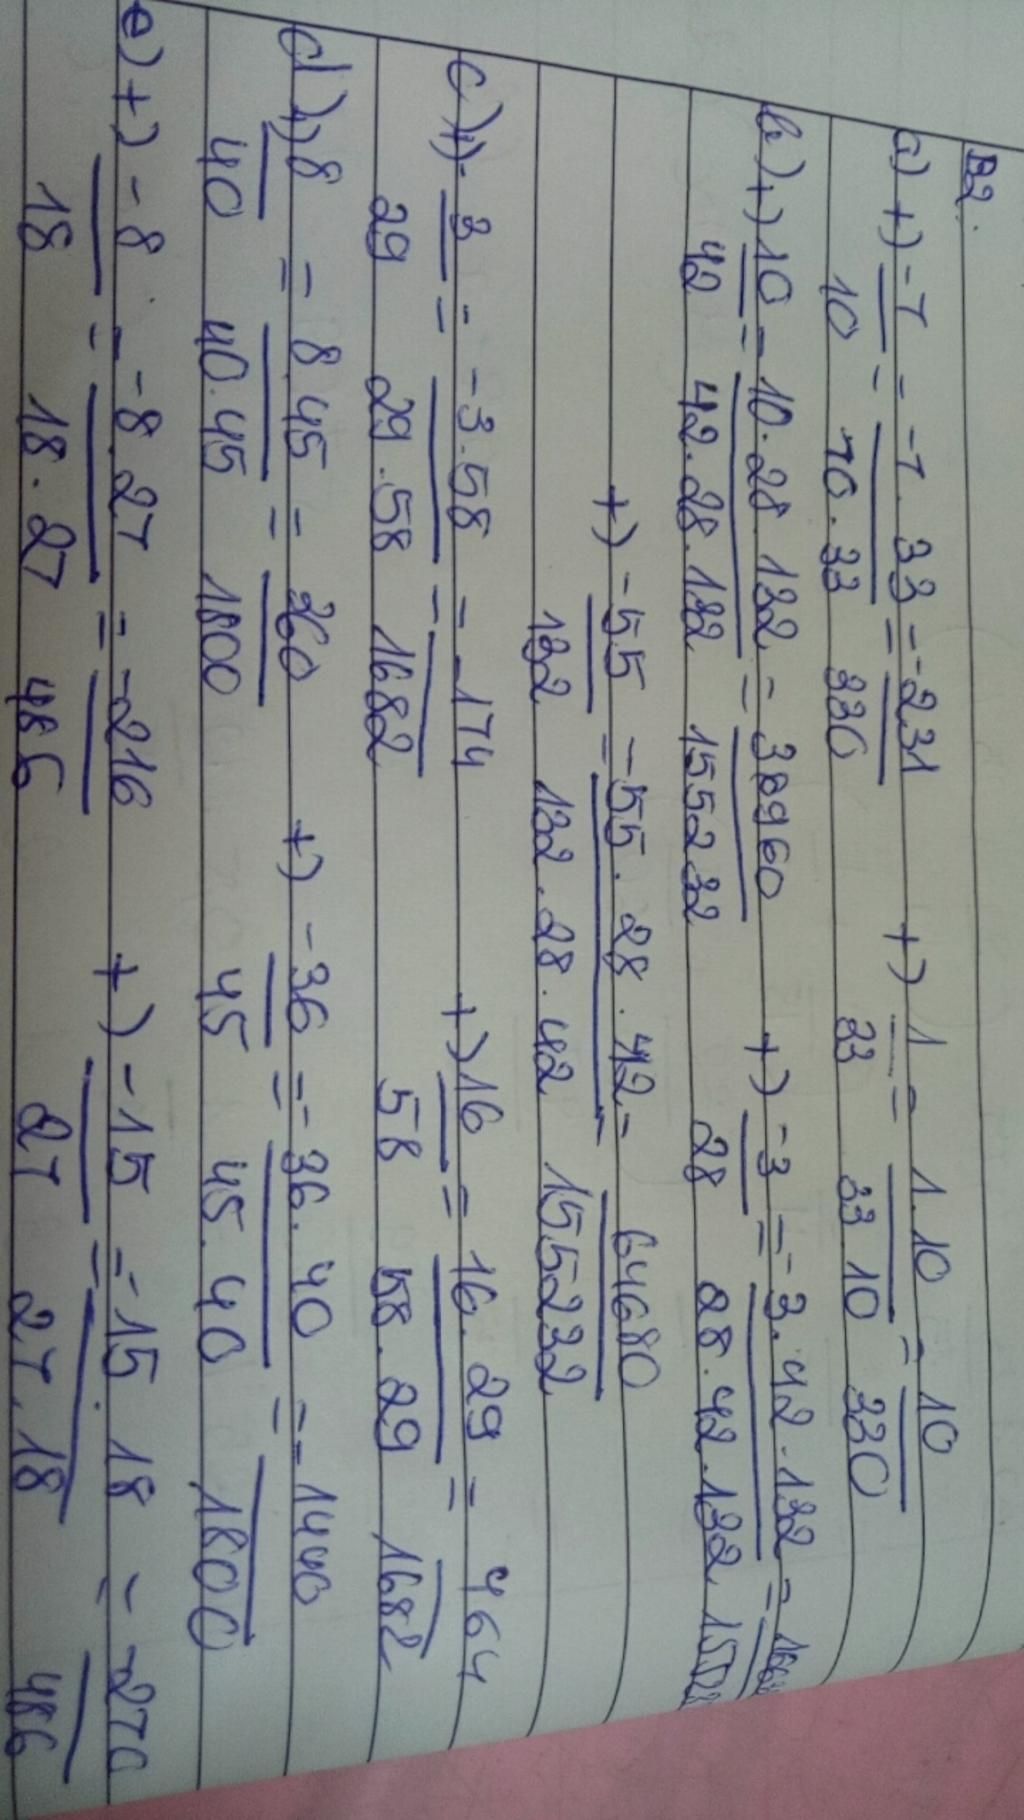 B2.
a) +) -7/10 = -7.33/10.33 = -231/330 +) 1/33 = 1.10/33.10 = 10/330
b) +) 10/42 = 10.28.132/42.28.132 = 36960/155232 +) -3/28 = -3.42.132/28.42.132
+) -55/132 = -55.28.42/132.28.42 = 64680/155232
c) +) -3/29 = -3.58/29.58 = -174/1682 +) 16/58 = 16.29/58.29 = 464/1682
d) +) 8/40 = 8.45/40.45 = 360/1800 +) -36/45 = -36.40/45.40 = -1440/1800
e) +) -8/18 = -8.27/18.27 = -216/486 +) -15/27 = -15.18/27.18 = -270/486